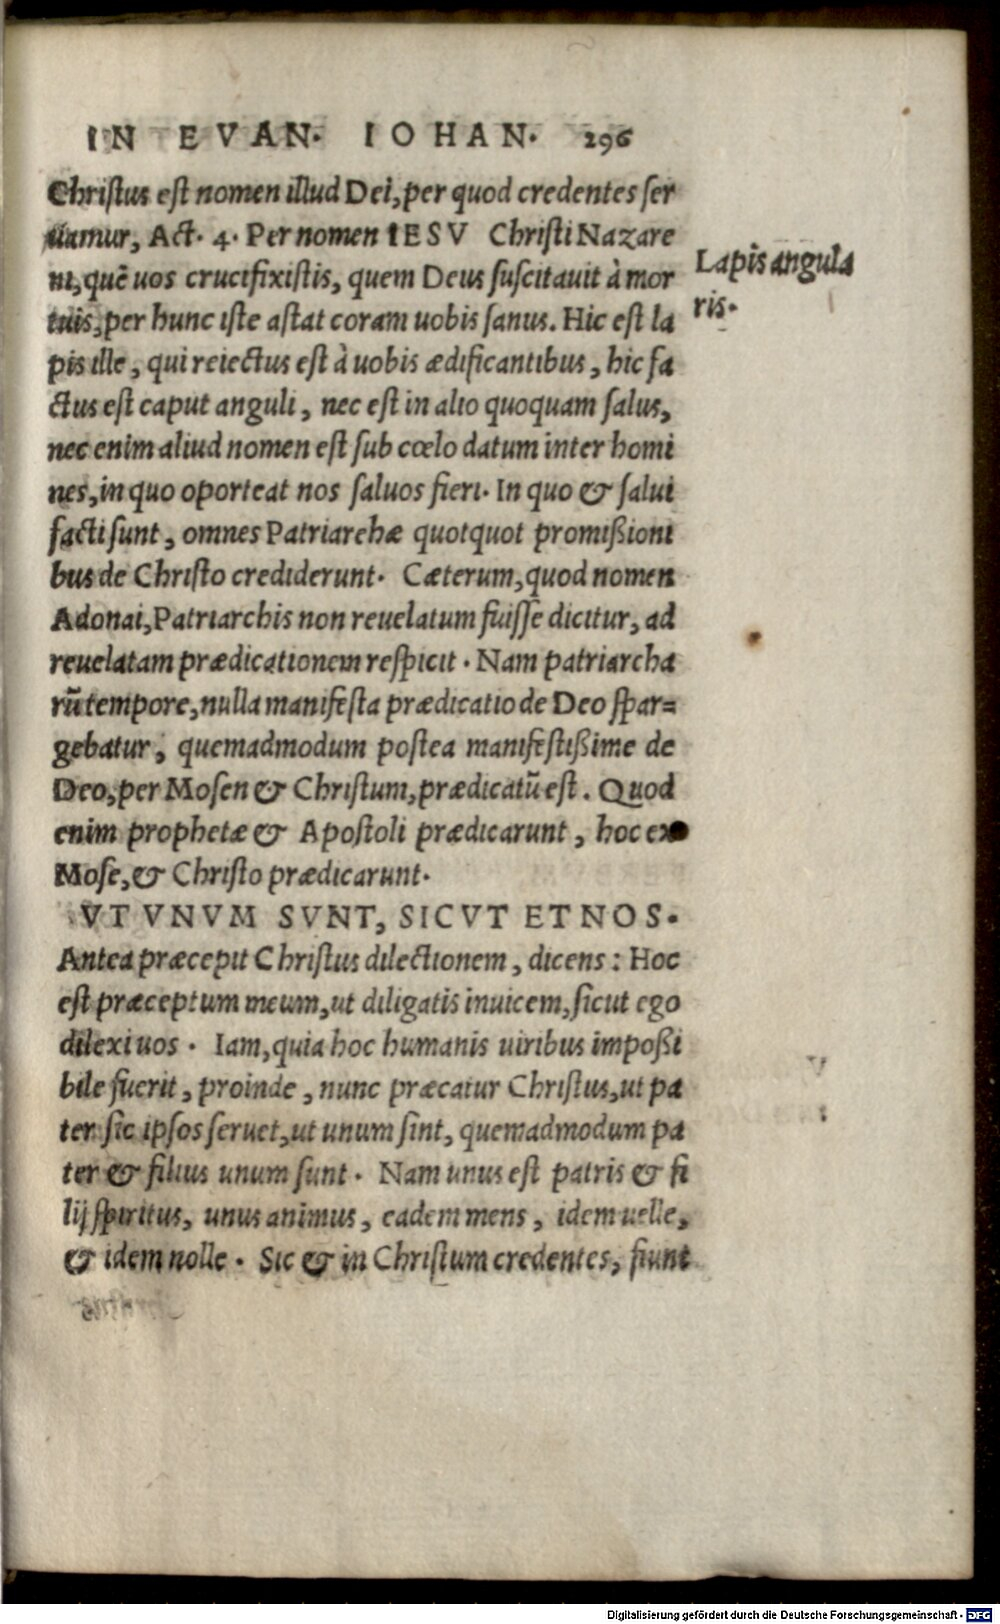 IN EVAN. IOHAN. 296
Christus est nomen illud Dei, per quod credentes ser
uamur, Act. 4. Per nomen IESV Christi Nazare
ni, quē uos crucifixistis, quem Deus suscitauit à mor
tuis, per hunc iste astat coram uobis sanus. Hic est la
pis ille, qui reiectus est à uobis ædificantibus, hic fa
ctus est caput anguli, nec est in alio quoquam salus,
nec enim aliud nomen est sub cœlo datum inter homi
nes, in quo oporteat nos saluos fieri. In quo & salui
facti sunt, omnes Patriarchæ quotquot promißioni
bus de Christo crediderunt. Cæterum, quod nomen
Adonai, Patriarchis non reuelatum fuisse dicitur, ad
reuelatam prædicationem respicit. Nam patriarcha
rū tempore, nulla manifesta prædicatio de Deo spar=
gebatur, quemadmodum postea manifestißime de
Deo, per Mosen & Christum, prædicatū est. Quod
enim prophetæ & Apostoli prædicarunt, hoc ex
Mose, & Christo prædicarunt.
VT VNVM SVNT, SICVT ET NOS.
Antea præcepit Christus dilectionem, dicens: Hoc
est præceptum meum, ut diligatis inuicem, sicut ego
dilexi uos. Iam, quia hoc humanis uiribus impoßi
bile fuerit, proinde, nunc præcatur Christus, ut pa
ter sic ipsos seruet, ut unum sint, quemadmodum pa
ter & filius unum sunt. Nam unus est patris & fi
lij spiritus, unus animus, eadem mens, idem uelle,
& idem nolle. Sic & in Christum credentes, fiunt
Lapis angula
ris.
Digitalisierung gefördert durch die Deutsche Forschungsgemeinschaft - DFG